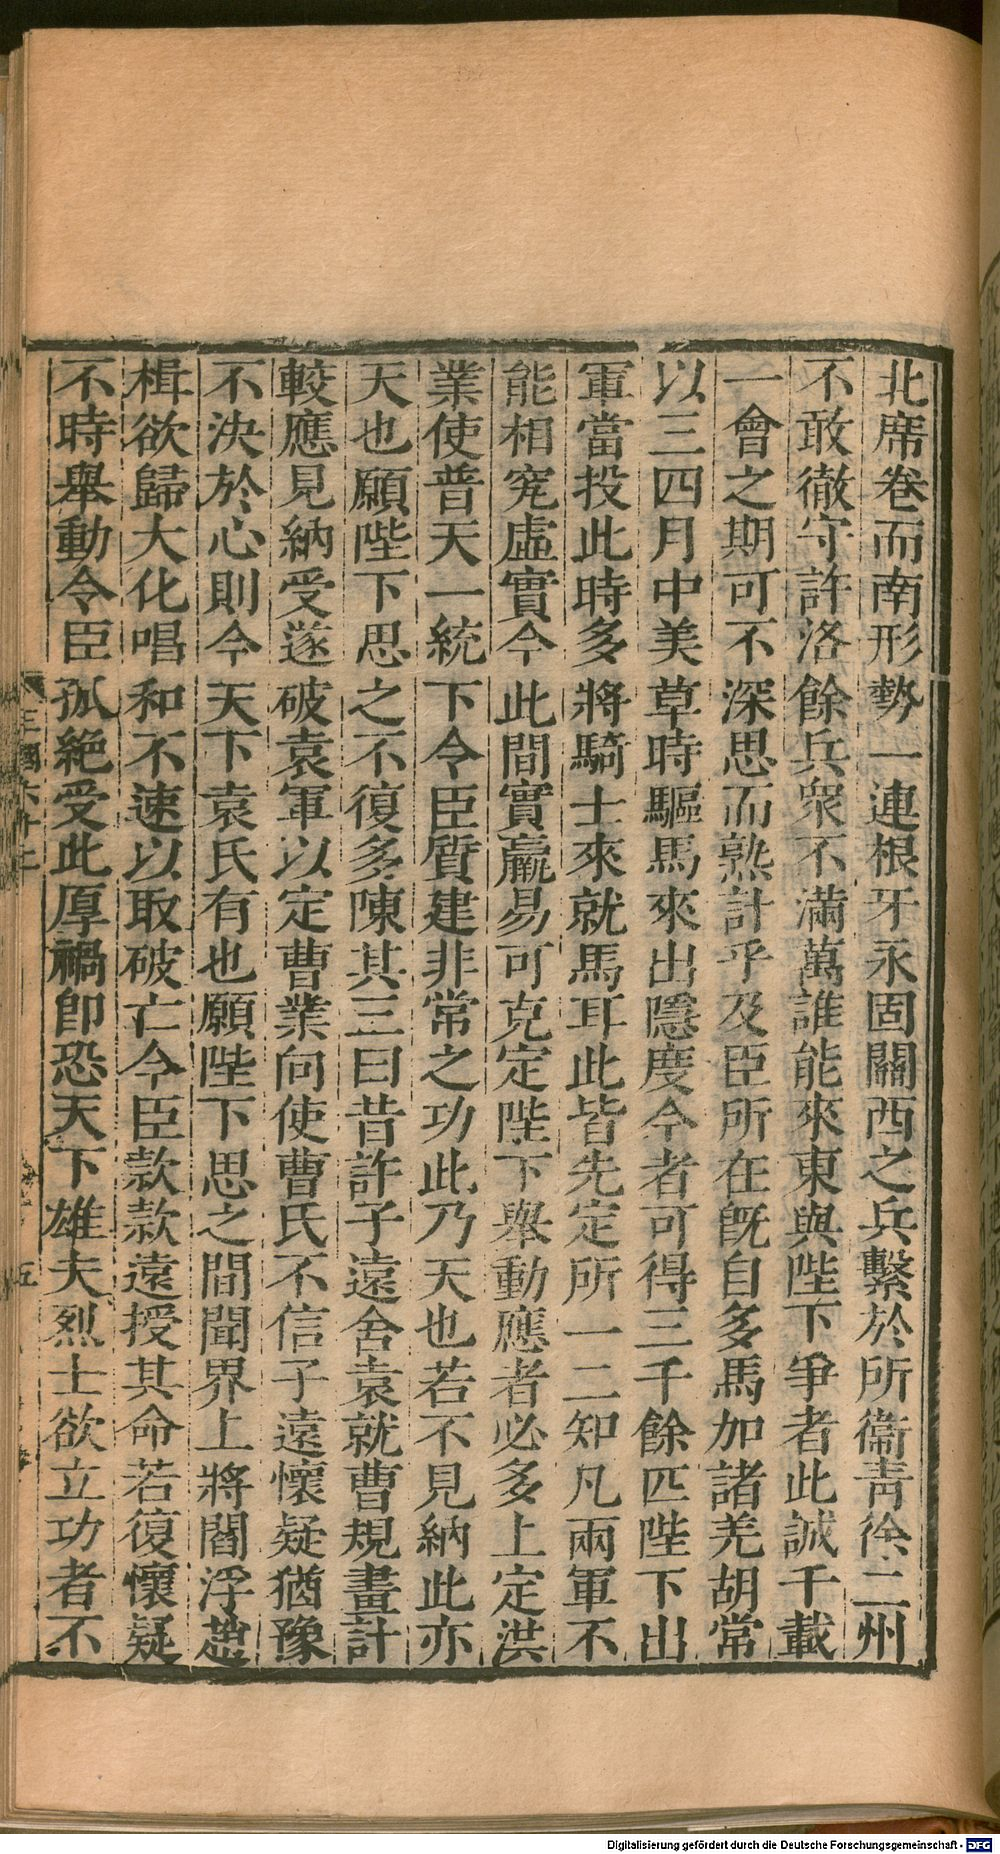 北席卷而南形勢一連根牙永固關西之兵繫於所衞靑徐二州
不敢徹守許洛餘兵衆不滿萬誰能來東與陛下爭者此誠千載
一會之期可不深思而熟計乎及臣所在旣自多馬加諸羌胡常
以三四月中美草時驅馬來出隱度今者可得三千餘匹陛下出
軍當投此時多將騎士來就馬耳此皆先定所一二知凡兩軍不
能相究虛實今此間實羸易可克定陛下舉動應者必多上定洪
業使普天一統下令臣質建非常之功此乃天也若不見納此亦
天也願陛下思之不復多陳其三曰昔許子遠舍袁就曹規畫計
較應見納受遂破袁軍以定曹業向使曹氏不信子遠懷疑猶豫
不決於心則今天下袁氏有也願陛下思之間聞界上將閻浮趙
楫欲歸大化唱和不速以取破亡今臣款款遠授其命若復懷疑
不時舉動令臣孤絶受此厚禍卽恐天下雄夫烈士欲立功者不
五
Digitalisierung gefördert durch die Deutsche Forschungsgemeinschaft - DFG